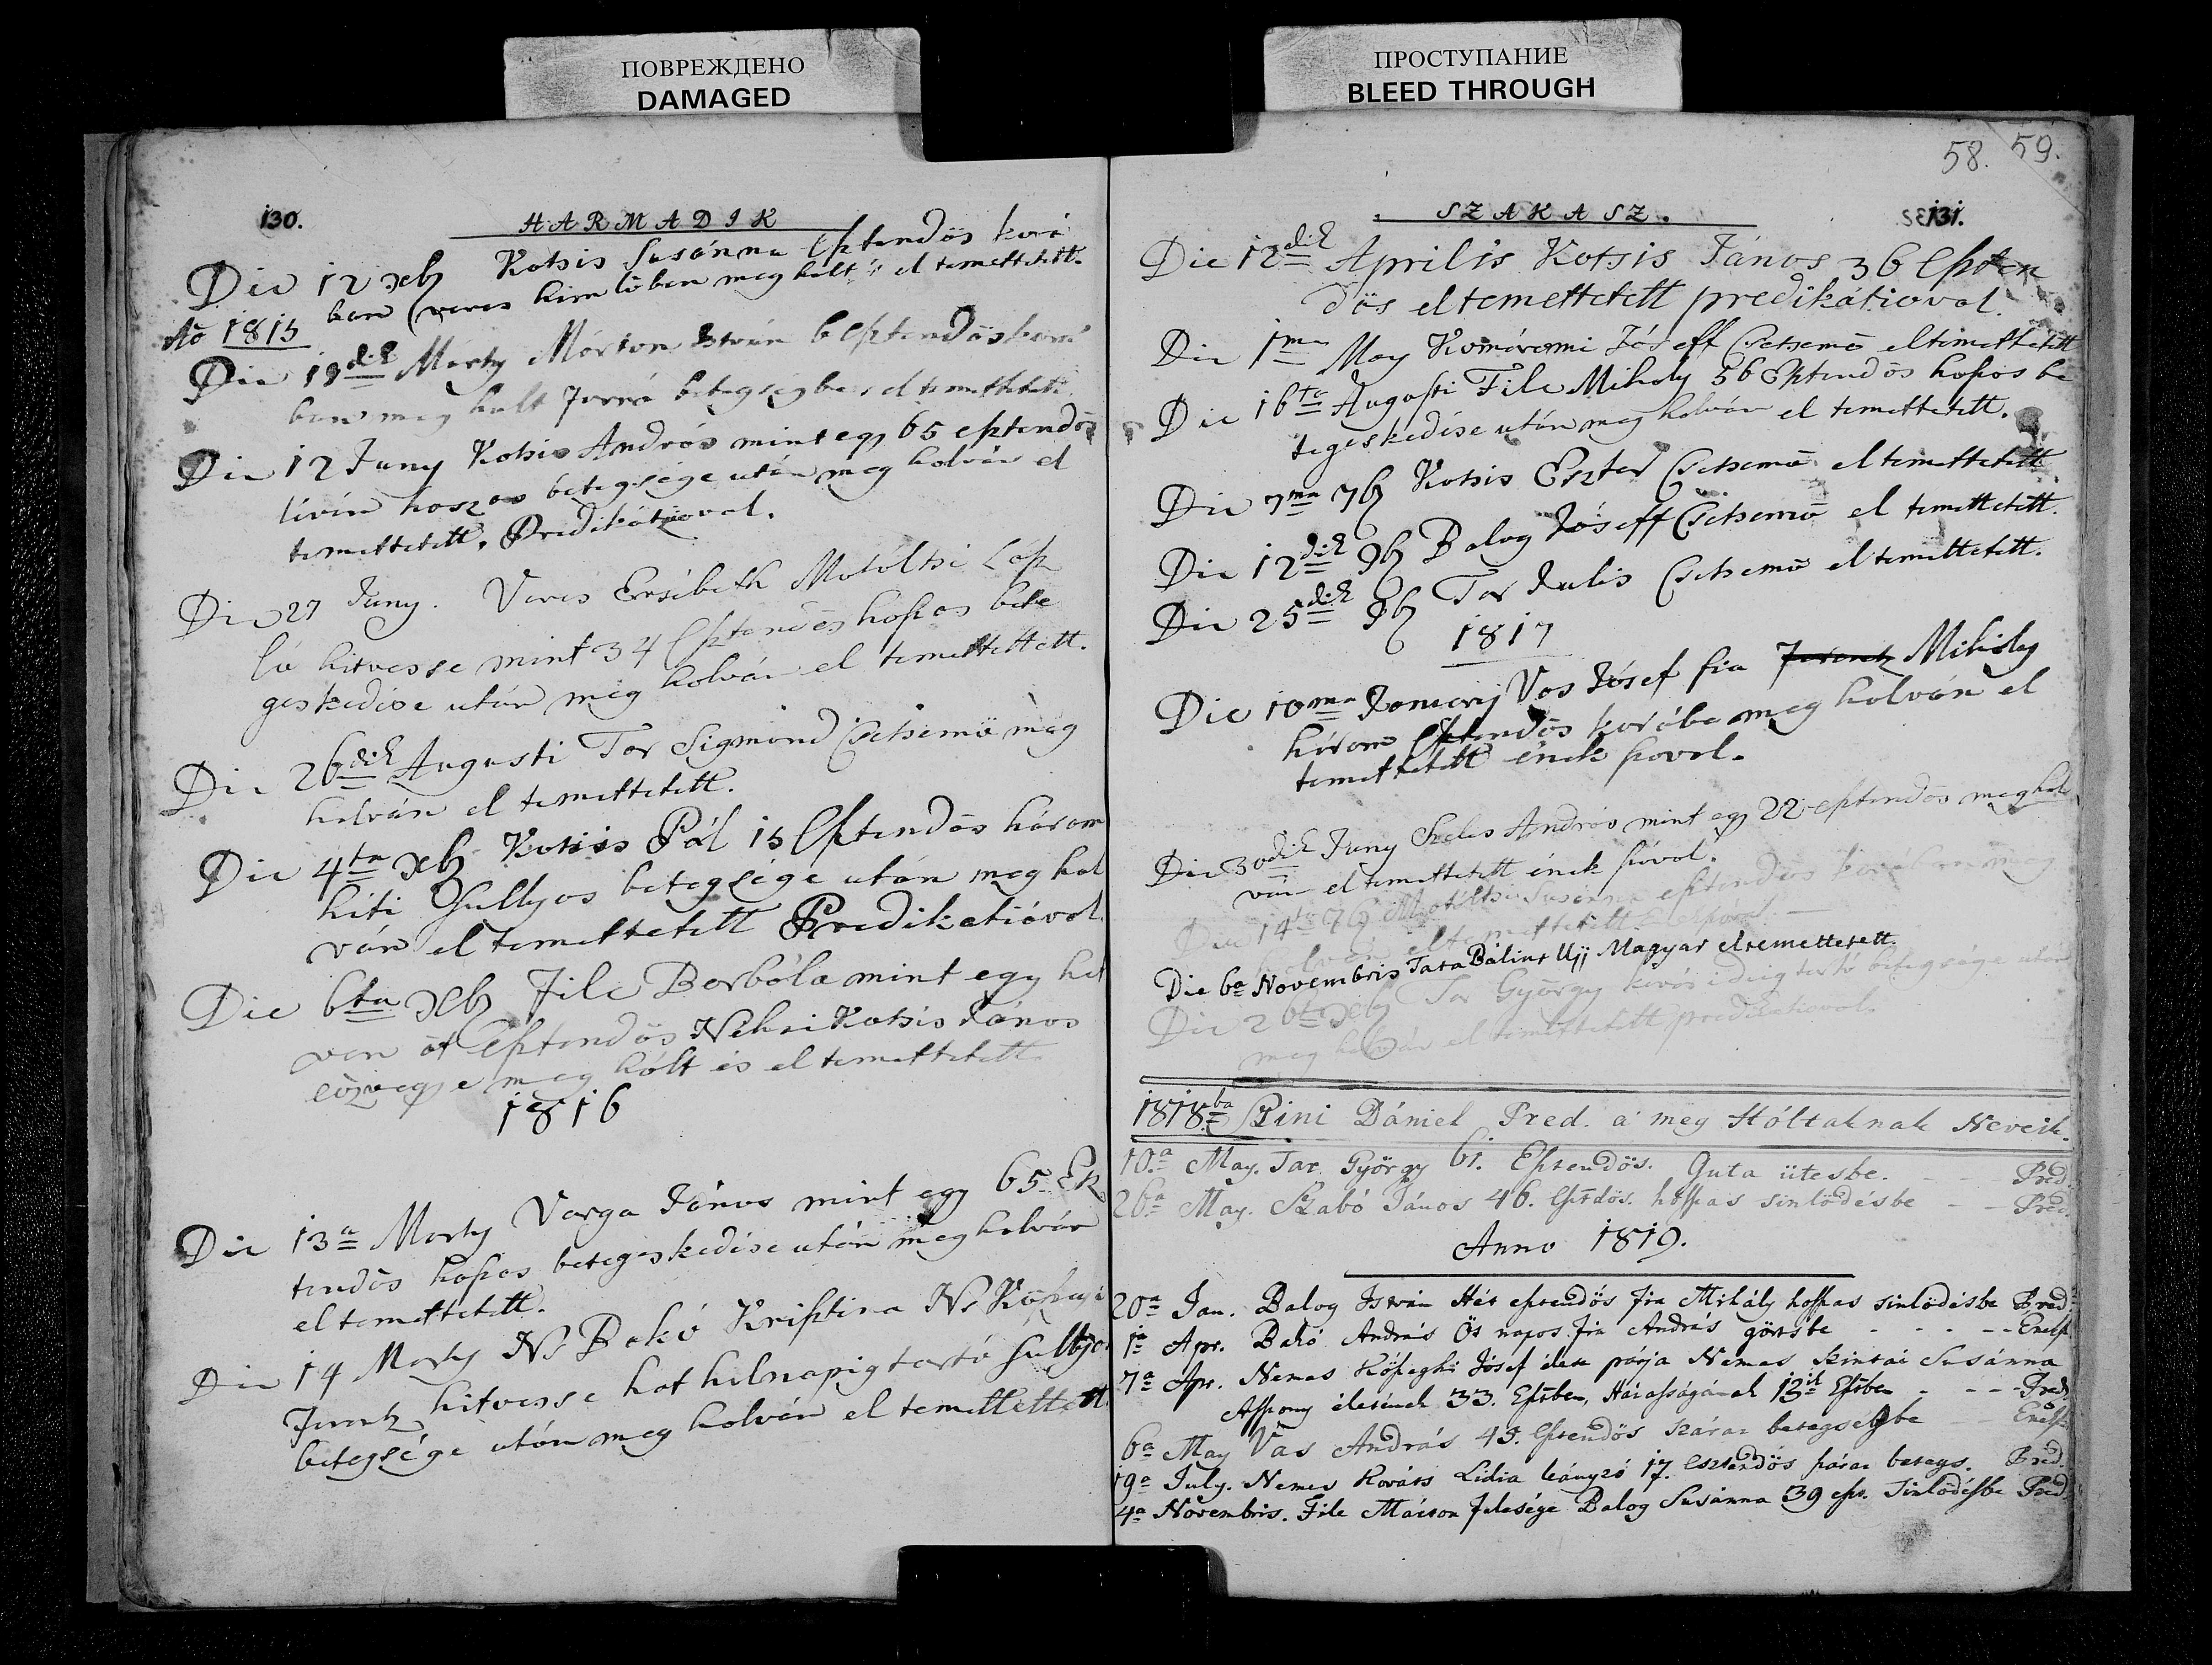 ПОВРЕЖДЕНО
DAMAGED
ПРОСТУПАНИЕ
BLEED THROUGH
58. 59.
130.
HARMADIK
Die 12 xb Kotsis Susánna Esztendös korá
ban veres himlöben meg holt 's el temettetett.
Ao 1815
Die 19dik Marty Márton István 6 Esztendös korá
ban meg halt forró betegségben el temettetett
Die 12 Juny Kotsis András mint egy 65 esztendös
lévén hoszas betegsége után meg holván el
temettetett. Predikátzioval.
Die 27 Juny. Veres Ersébeth Motóltsi Lász
ló hitvesse mint 34 Esztendös hoszas bete
geskedése után meg holván el temettetett.
Die 26dik Augusti Tar Sigmond Csetsemö meg
holván el temettetett.
Die 4ta xb Kotsis Pál 15 Esztendös három
héti Sullyos betegsége után meg hol
ván el temettetett Predikatióval.
Die 6ta xb File Borbóla mint egy het
ven öt Esztendös Néhai Kotsis János
eözvegye meg hólt és el temettetett.
1816
Die 13a Marty Varga János mint egy 65 Esz
tendös hoszas betegeskedése után meg holván
el temettetett.
Die 14 Marty Ns Bakó Krisztina Ns Köszegi
Ferentz hitvesse hat holnapig tartó sullyos
betegsége után meg holván el temettetett.
SZAKASZ.
131.
Die 12dik Aprilis Kotsis János 36 Eszten
dös el temettetett predikátioval.
Die 1ma May Komáromi Jóseff Csetsemö el temettetett
Die 16ta Augusti File Mihaly 56 Esztendös hoszos be
tegeskedése után meg holván el temettetett.
Die 7ma 7b Kotsis Eszter Csetsemö el temettetett.
Die 12dik 9b Balog Jóseff Csetsemö el temettetett.
Die 25dik 9b Tar Julis Csetsemö el temettetett.
1817
Die 10ma Januarij Vas Jósef fia Ferentz Mihály
három Esztendös korába meg holván el
temettetett ének szoval.
Die 30dik Juny Szeles András mint egy 22 esztendös meg hol
ván el temettetett ének szóval.
Die 14ta 7b Motóltsi Susánna esztendös korában meg
holván el temettetett
Die 6a Novembris Tata Bálint Ujj Magyar eltemettetett.
Die 26ta xb Tar György kevés ideig tartó betegsége után
meg holván el temettetett predikatioval.
1818ba Szini Dániel Pred. a' meg Hóltaknak Neveik.
10.a May. Tar György 61. Esztendös. Guta ütesbe. - - - Pred.
26.a May. Szabó János 46. Esztdös. hoszas sinlödésbe - - Pred.
Anno 1819.
20a Jan. Balog István Hét esztendös fia Mihály hoszas sinlödésbe Pred.
1a Apr. Bakó András Ös napos fia András görtsbe - - - - Eneksz
7a Apr. Nemes Köszeghi Jósef élete párja Nemes Szintai Susánna
Asszony életének 33. Esztben, Házasságának 13ik Esztben - - - Pred.
6a May Vas András 49. Esztendös száraz betegségbe Eneksz
19a July. Nemes Kováts Lidia leányzó 17. Esztendös száraz betegs. Pred.
4a Novembris. File Márton felesége Balog Susánna 39 eszt. Sinlödésbe Pred.